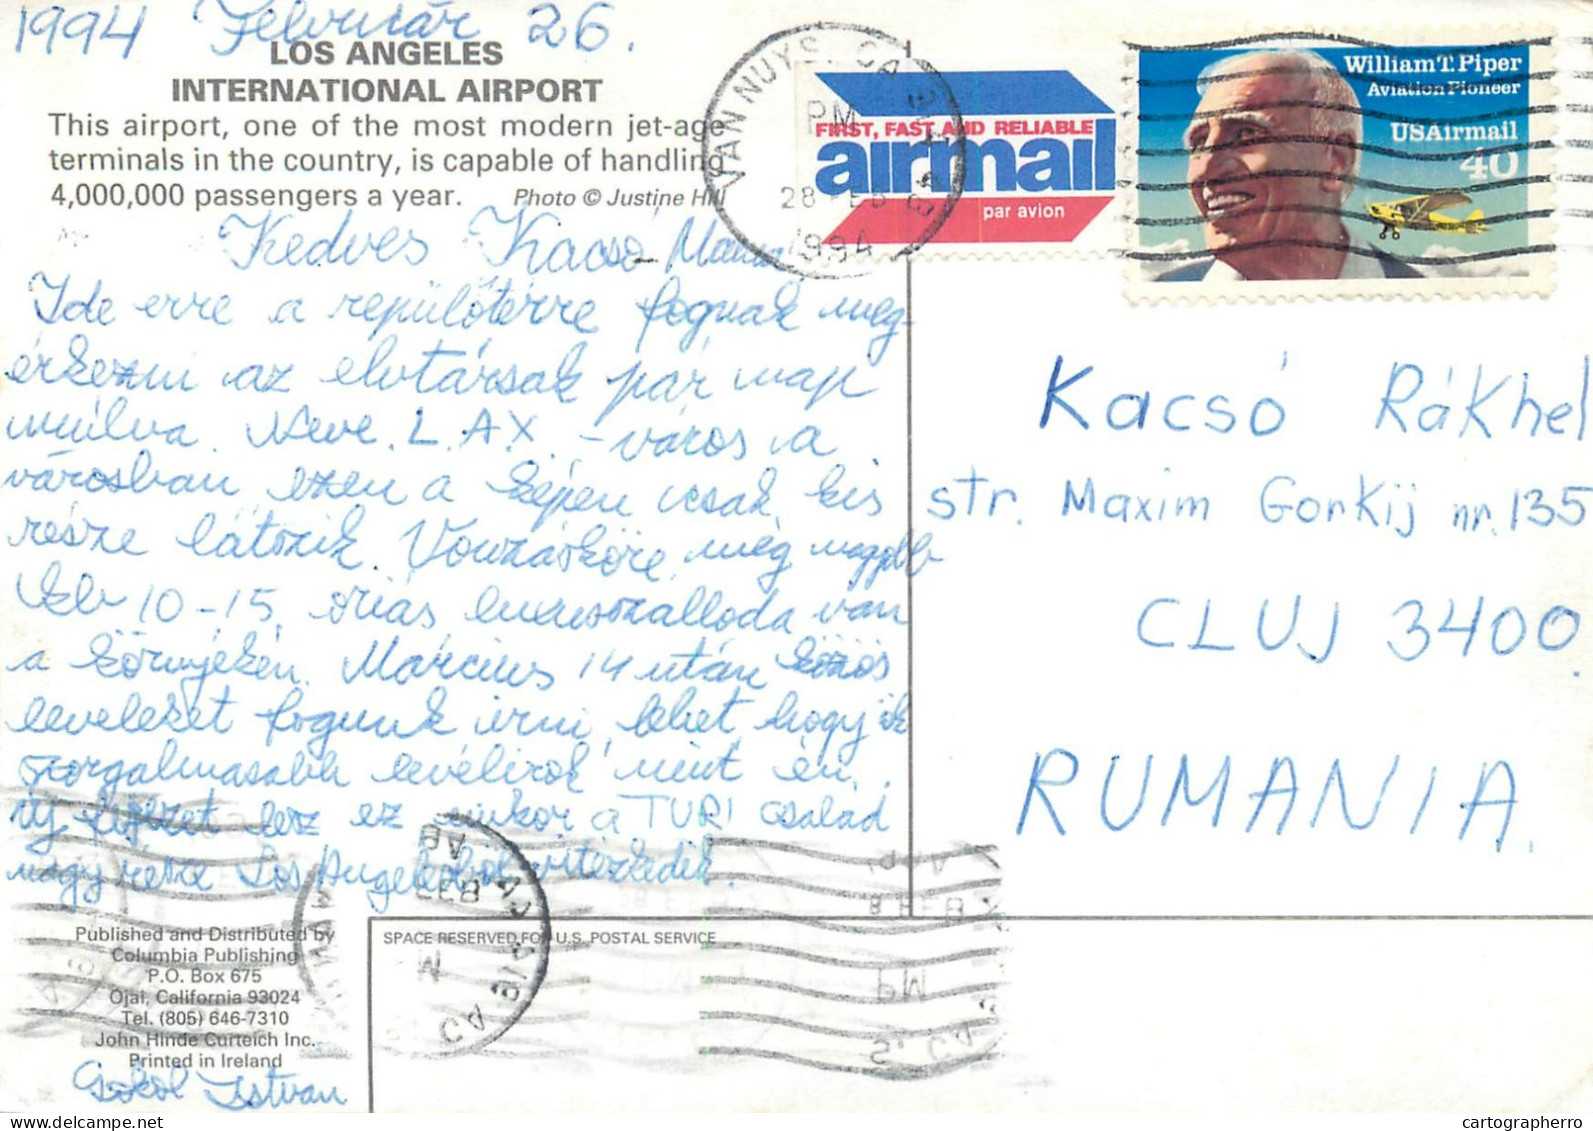 1994 Február 26.
LOS ANGELES
INTERNATIONAL AIRPORT
This airport, one of the most modern jet-age
terminals in the country, is capable of handling
4,000,000 passengers a year. Photo © Justine Hill
Kedves Kacsó Mama
Ide erre a repülőtérre fognak meg-
érkezni az elvtársak pár nap
múlva. Neve L.A.X. - város a
városban, ezen a képen csak kis
része látszik. Vonzásköre még nagyobb
kb 10-15 óriás luxusszálloda van
a környékén. Március 14 után közös
leveleket fogunk írni, lehet, hogy ők
szorgalmasabb levélírók mint én.
Új fejezet lesz ez mikor a TURI család
nagy része Los Angelesben vitézkedik.
Published and Distributed by
Columbia Publishing
P.O. Box 675
Ojai, California 93024
Tel. (805) 646-7310
John Hinde Curteich Inc.
Printed in Ireland
Sokol Istvan
SPACE RESERVED FOR U.S. POSTAL SERVICE
VAN NUYS, CA
PM
28 FEB
1994
FIRST, FAST AND RELIABLE
airmail
par avion
William T. Piper
Aviation Pioneer
USAirmail
40
Kacsó Rákhel
str. Maxim Gorkij nr. 135
CLUJ 3400.
RUMANIA.
cartographerro